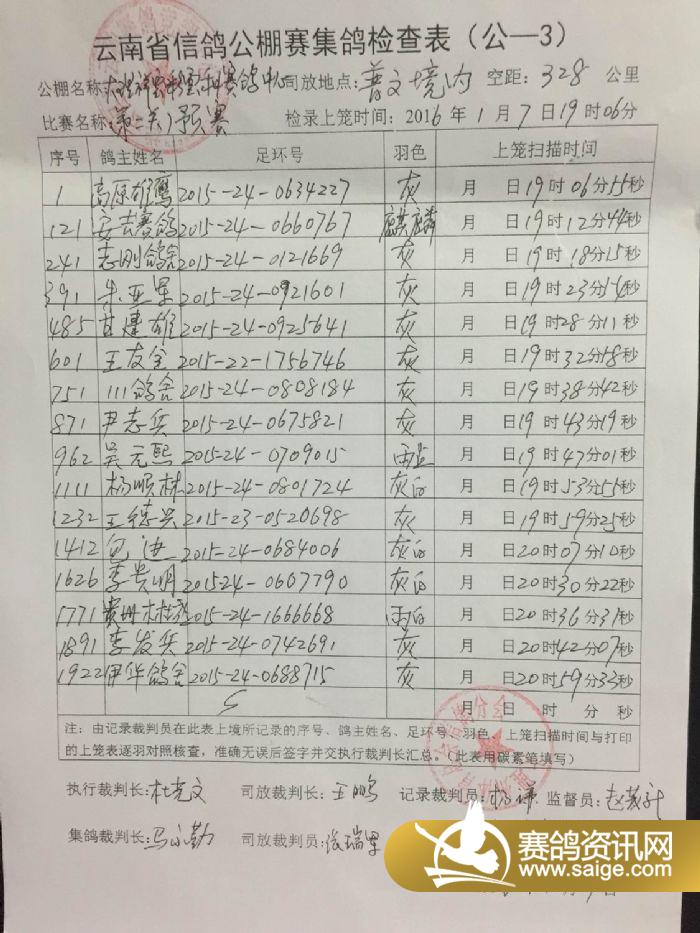 云南省信鸽公棚赛集鸽检查表（公—3）
公棚名称 赛鸽中心 司放地点：普文境内 空距：328 公里
比赛名称 第二关预赛 检录上笼时间：2016年1月7日19时06分
序号 鸽主姓名 足环号 羽色 上笼扫描时间
1 高原雄鹰 2015-24-0634227 灰 月 日19时06分55秒
121 安吉赛鸽 2015-24-0660767 麒麟 月 日19时12分44秒
241 志刚鸽舍 2015-24-0121669 灰 月 日19时18分15秒
391 朱亚军 2015-24-0921601 灰 月 日19时23分54秒
485 甘建雄 2015-24-0925641 灰 月 日19时28分11秒
601 王友全 2015-22-1756746 灰 月 日19时32分58秒
751 111鸽舍 2015-24-0808184 灰 月 日19时38分42秒
871 尹志兵 2015-24-0675821 灰 月 日19时43分19秒
962 吴元熙 2015-24-0709015 雨点 月 日19时47分01秒
1111 杨顺林 2015-24-0801724 灰白 月 日19时53分55秒
1232 王德兴 2015-23-0520698 灰 月 日19时59分25秒
1412 包进 2015-24-0684006 灰白 月 日20时07分10秒
1626 李贵明 201524-0607790 灰白 月 日20时30分22秒
1771 贵州 2015-24-1666668 雨白 月 日20时36分31秒
1891 李发兵 2015-24-0742691 灰 月 日20时42分07秒
1922 伊华鸽舍 2015-24-0688715 灰 月 日20时59分33秒
月 日 时 分 秒
注：由记录裁判员在此表上填所记录的序号、鸽主姓名、足环号、羽色、上笼扫描时间与打印
的上笼表逐羽对照核查，准确无误后签字并交执行裁判长汇总。（此表用碳素笔填写）
执行裁判长：杜克文 司放裁判长：王鹏 记录裁判员：杨谦 监督员：
集鸽裁判长：马永勤 司放裁判员：张瑞军
赛鸽资讯网
www.saige.com